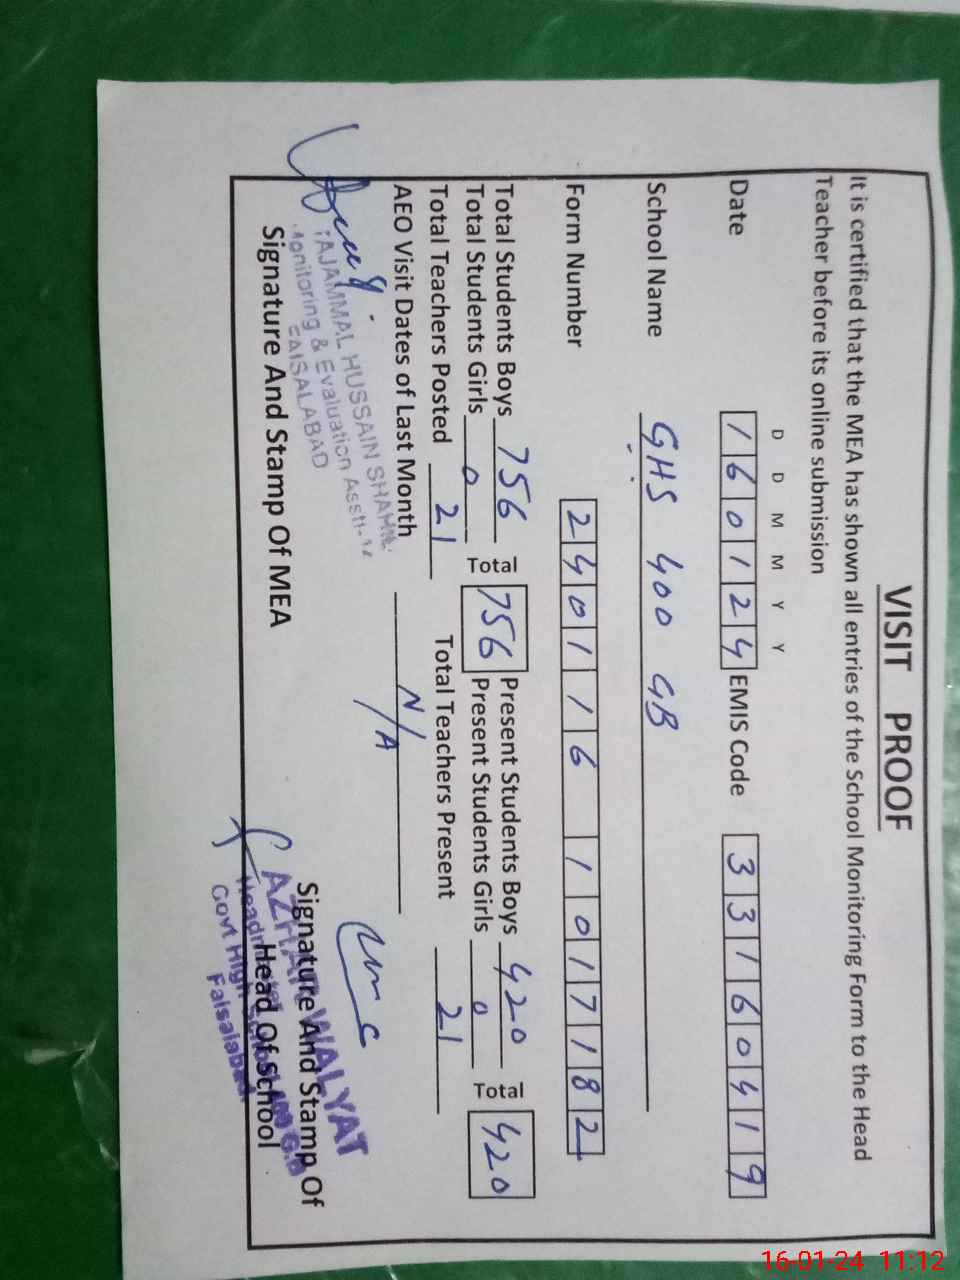 VISIT PROOF
It is certified that the MEA has shown all entries of the School Monitoring Form to the Head
Teacher before its online submission
D D M M Y Y
Date 160124 EMIS Code 33160419
School Name GHS 400 GB
Form Number 240116 1017182
Total Students Boys 756 Total 756 Present Students Boys 420 Total 420
Total Students Girls 0 Present Students Girls 0
Total Teachers Posted 21 Total Teachers Present 21
AEO Visit Dates of Last Month N/A
TAJAMMAL HUSSAIN SHAHI
Monitoring & Evaluation Asstt-
FAISALABAD
Signature And Stamp Of MEA
Signature And Stamp Of
Head Of School
AZHAR WALYAT
Govt High
Faisalabad
16-01-24 11:12